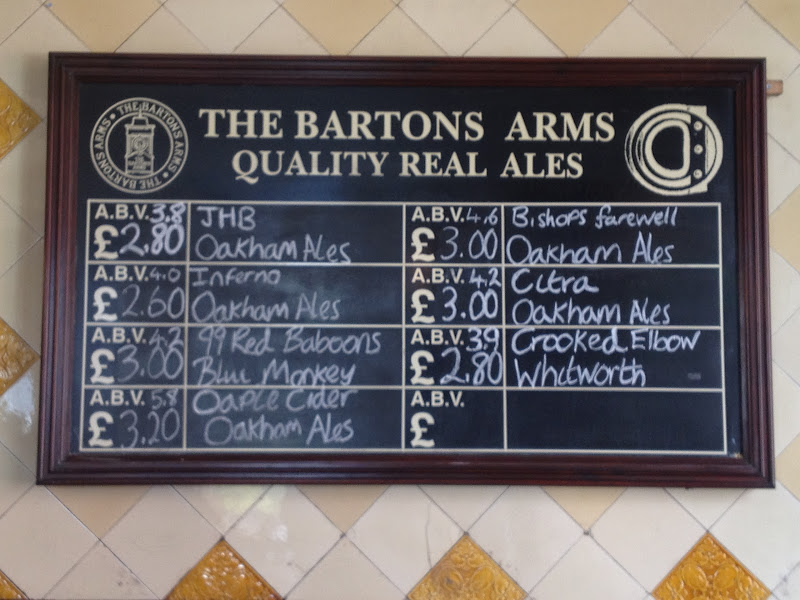 THE BARTONS ARMS
THE BARTONS ARMS
THE BARTONS ARMS
QUALITY REAL ALES
A.B.V. 3.8 JHB
£2.80 Oakham Ales
A.B.V. 4.0 Inferno
£2.60 Oakham Ales
A.B.V. 4.2 99 Red Baboons
£3.00 Blue Monkey
A.B.V. 5.8 Oaple Cider
£3.20 Oakham Ales
A.B.V. 4.6 Bishops farewell
£3.00 Oakham Ales
A.B.V. 4.2 Citra
£3.00 Oakham Ales
A.B.V. 3.9 Crooked Elbow
£2.80 Whitworth
A.B.V.
£